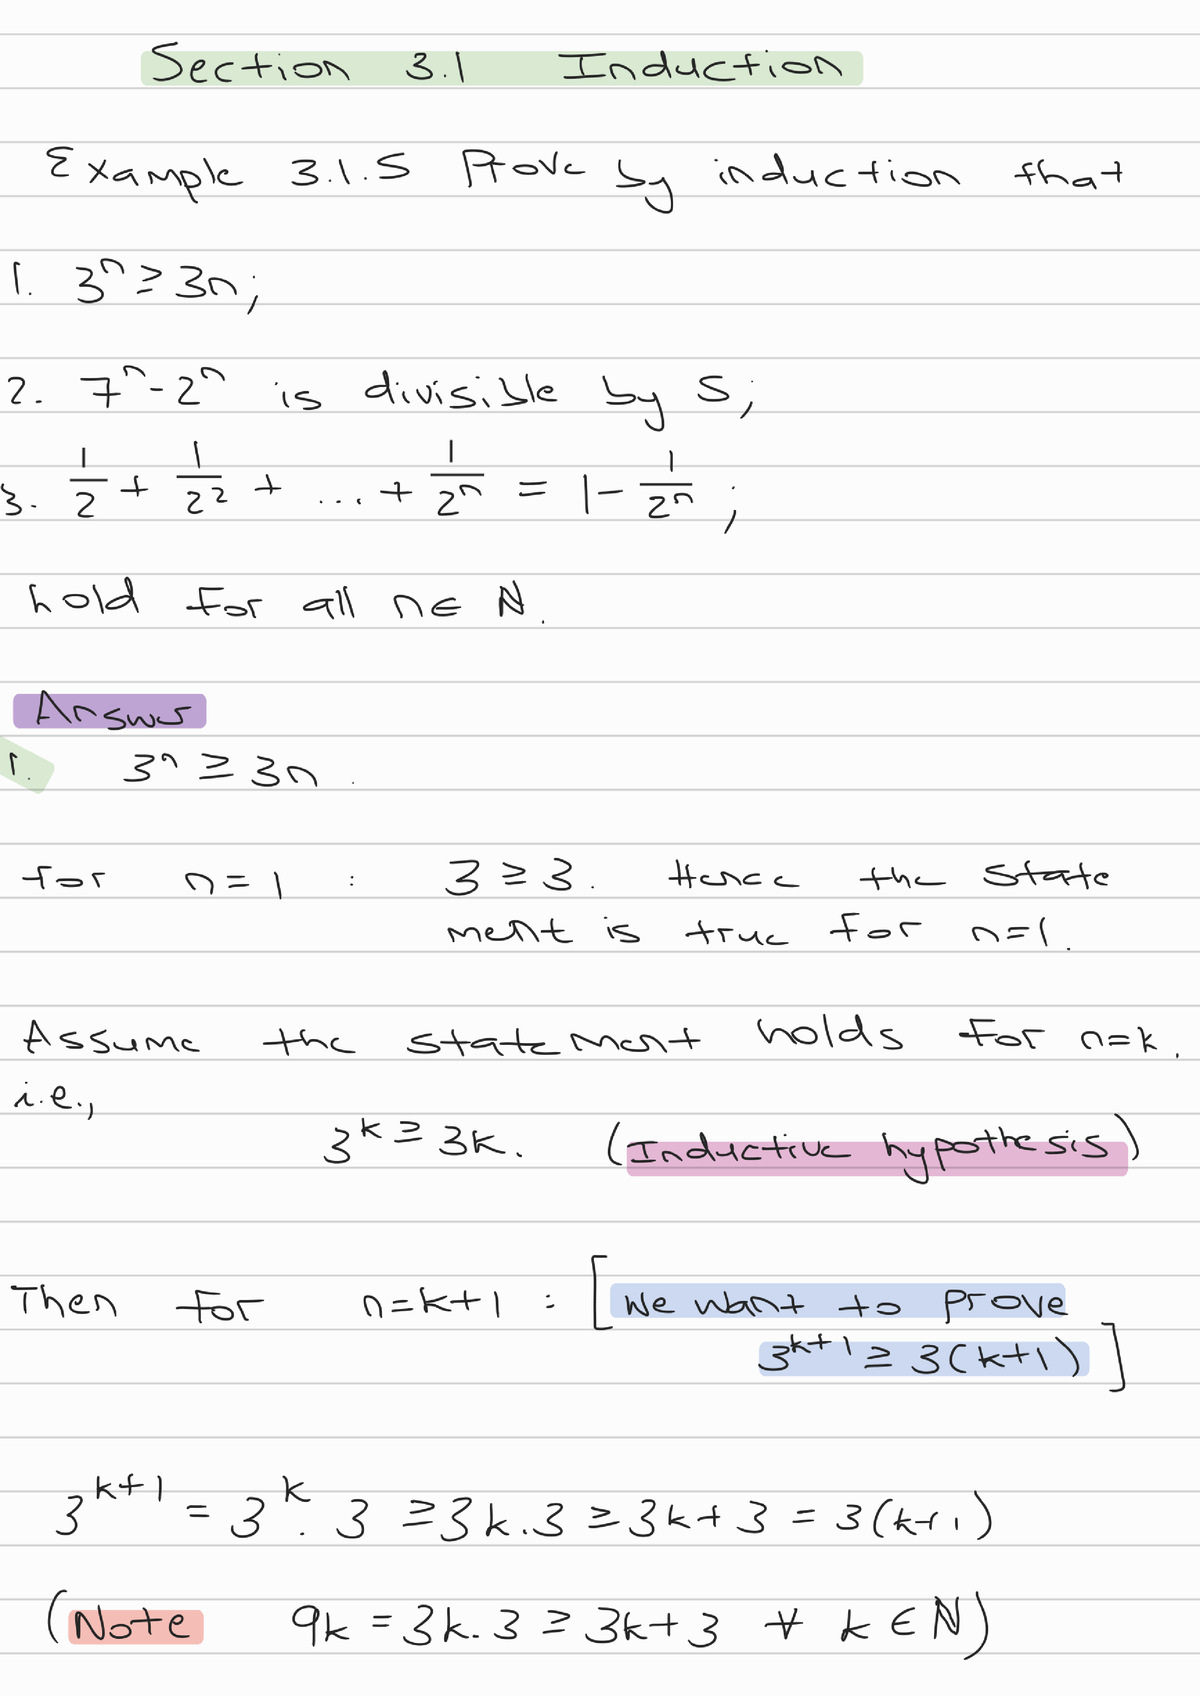 Section 3.1 Induction
Example 3.1.5 Prove by induction that
1. 3ⁿ ≥ 3n;
2. 7ⁿ - 2ⁿ is divisible by 5;
3. 1/2 + 1/2² + ... + 1/2ⁿ = 1 - 1/2ⁿ ;
hold for all n ∈ ℕ.
Answer
1. 3ⁿ ≥ 3n.
for n = 1 : 3 ≥ 3. Hence the state
ment is true for n=1.
Assume the statement holds for n=k.
i.e.,
3ᵏ ≥ 3k. (Inductive hypothesis)
Then for n=k+1 : [We want to prove
3ᵏ⁺¹ ≥ 3(k+1)]
3ᵏ⁺¹ = 3ᵏ. 3 ≥ 3k.3 ≥ 3k+3 = 3(k+1)
(Note 9k = 3k.3 ≥ 3k+3 ∀ k ∈ ℕ)